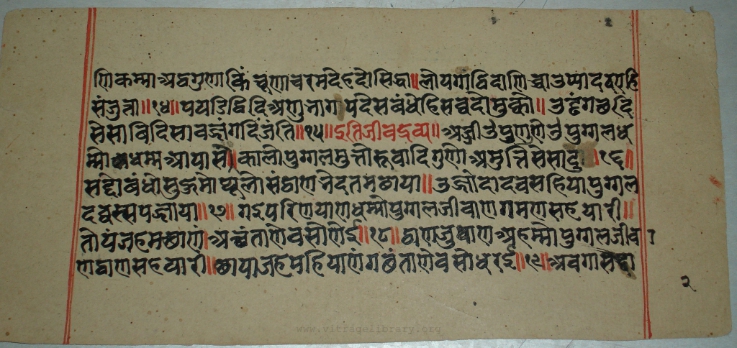 णिकम्मा अट्ठगुणा किंचूणा चरमदेहदो सिद्धा॥लोयग्गठिदा णिच्चा उप्पादवएहि
संजुत्ता॥१४॥पयडिट्ठिदिअणुभागपदेसबंधेहिं सव्वदो मुक्को॥उड्ढं गच्छदि
सेसा विदिसावज्जं गदिं जंति॥१५॥इति जीवदव्व॥अज्जीवो पुण णेओ पुग्गल ध
म्मो अधम्म आयासो॥कालो पुग्गल मुत्तो रूवादिगुणो अमुत्ति सेसा दु॥१६॥
सद्दो बंधो सुहुमो थूलो संठाण भेद तम छाया॥उज्जोदादवसहिया पुग्गल
दव्वस्स पज्जाया॥१७॥गइपरिणयाण धम्मो पुग्गलजीवाण गमणसहयारी॥
तोयं जह मच्छाणं अच्छंता णेव सो णेई॥१८॥ठाणजुदाण अहम्मो पुग्गलजीवा
ण ठाणसहयारी॥छाया जह पहियाणं गच्छंता णेव सो धरई॥१९॥अवगासदा
२
www.virtuelibrary.org